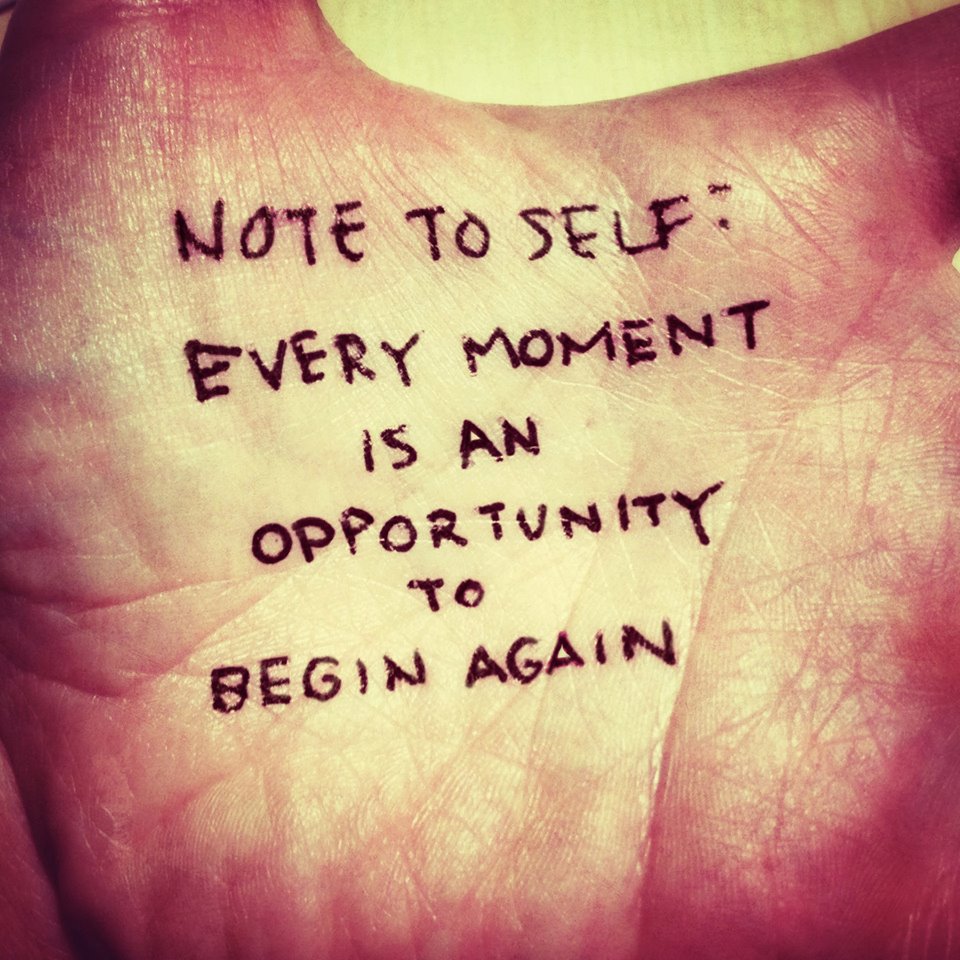 NOTE TO SELF:
EVERY MOMENT
IS AN
OPPORTUNITY
TO
BEGIN AGAIN